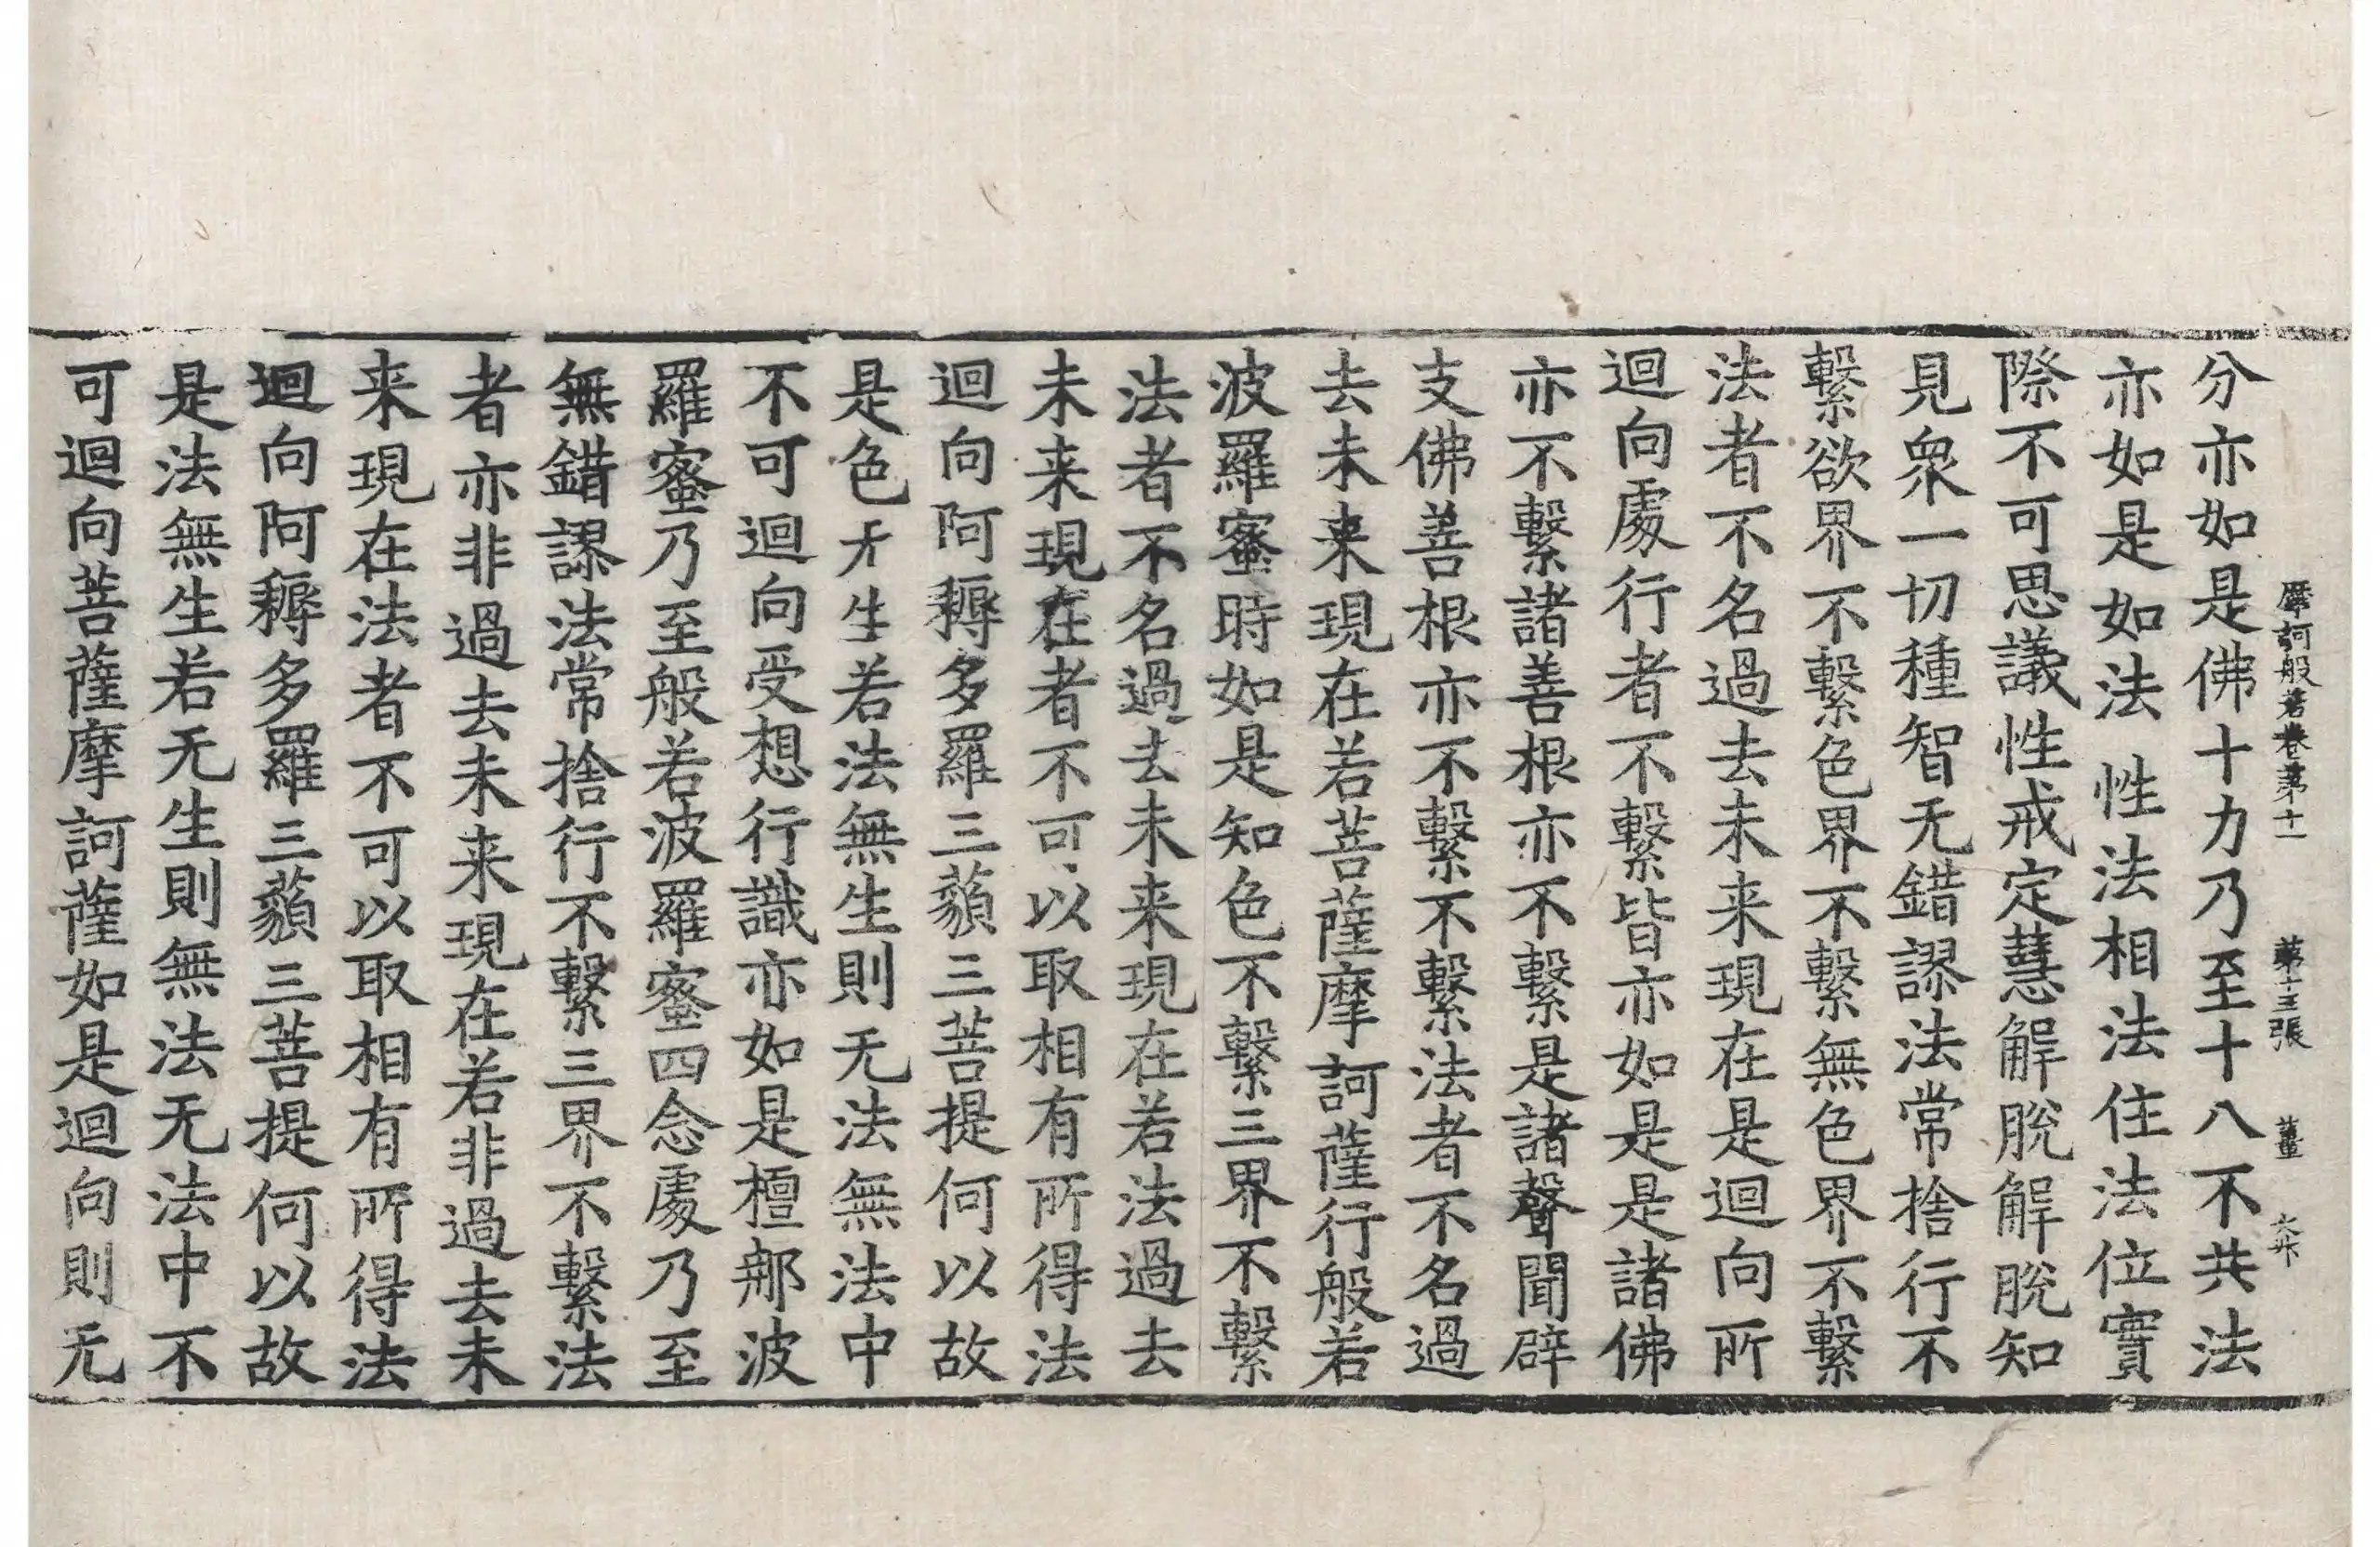 摩訶般若卷第十一 第十五張 薑
分亦如是佛十力乃至十八不共法
亦如是如法性法相法住法位實
際不可思議性戒定慧解脫解脫知
見衆一切種智无錯謬法常捨行不
繫欲界不繫色界不繫無色界不繫
法者不名過去未来現在是迴向所
迴向處行者不繫皆亦如是是諸佛
亦不繫諸善根亦不繫是諸聲聞辟
支佛善根亦不繫不繫法者不名過
去未来現在若菩薩摩訶薩行般若
波羅蜜時如是知色不繫三界不繫
法者不名過去未来現在若法過去
未来現在者不可以取相有所得法
迴向阿耨多羅三藐三菩提何以故
是色无生若法無生則无法無法中
不可迴向受想行識亦如是檀那波
羅蜜乃至般若波羅蜜四念處乃至
無錯謬法常捨行不繫三界不繫法
者亦非過去未来現在若非過去未
来現在法者不可以取相有所得法
迴向阿耨多羅三藐三菩提何以故
是法無生若无生則無法无法中不
可迴向菩薩摩訶薩如是迴向則无